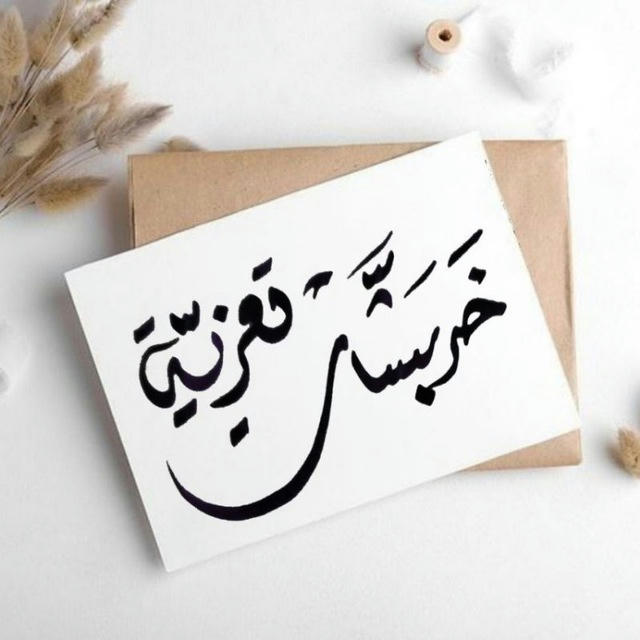 خَربَشَات تعزيّة